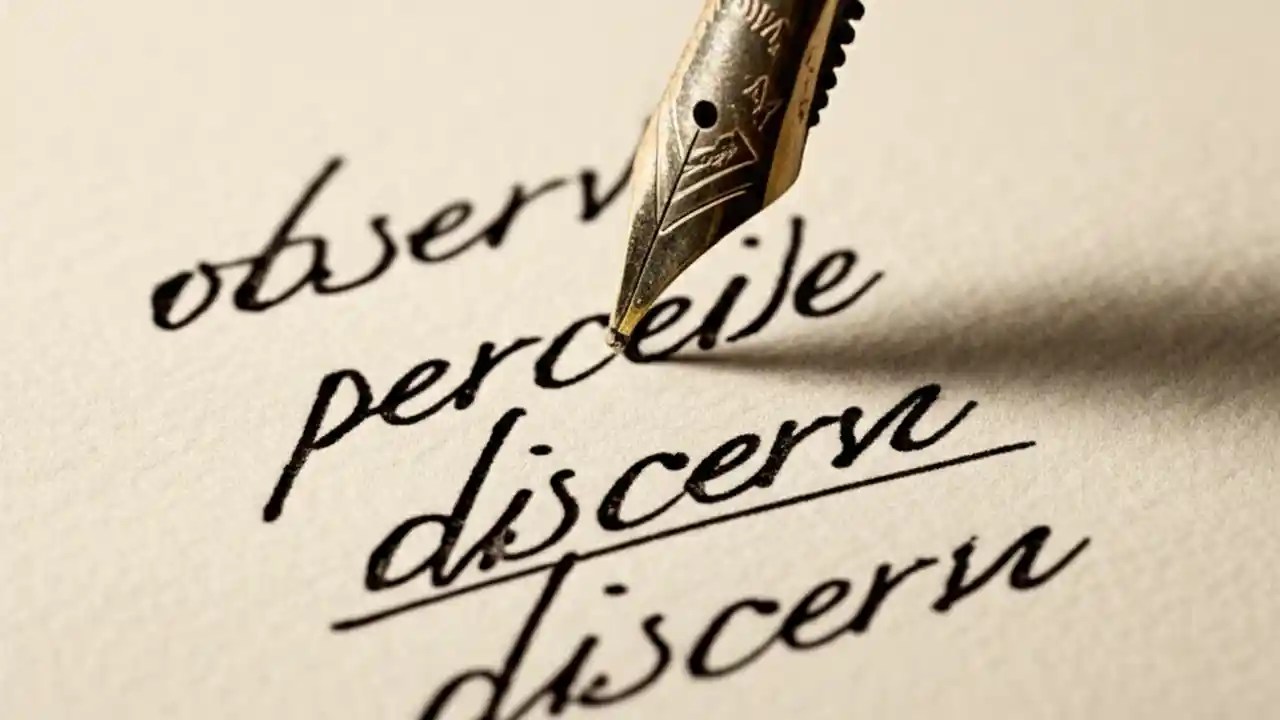 observ
perceive
discern
discern